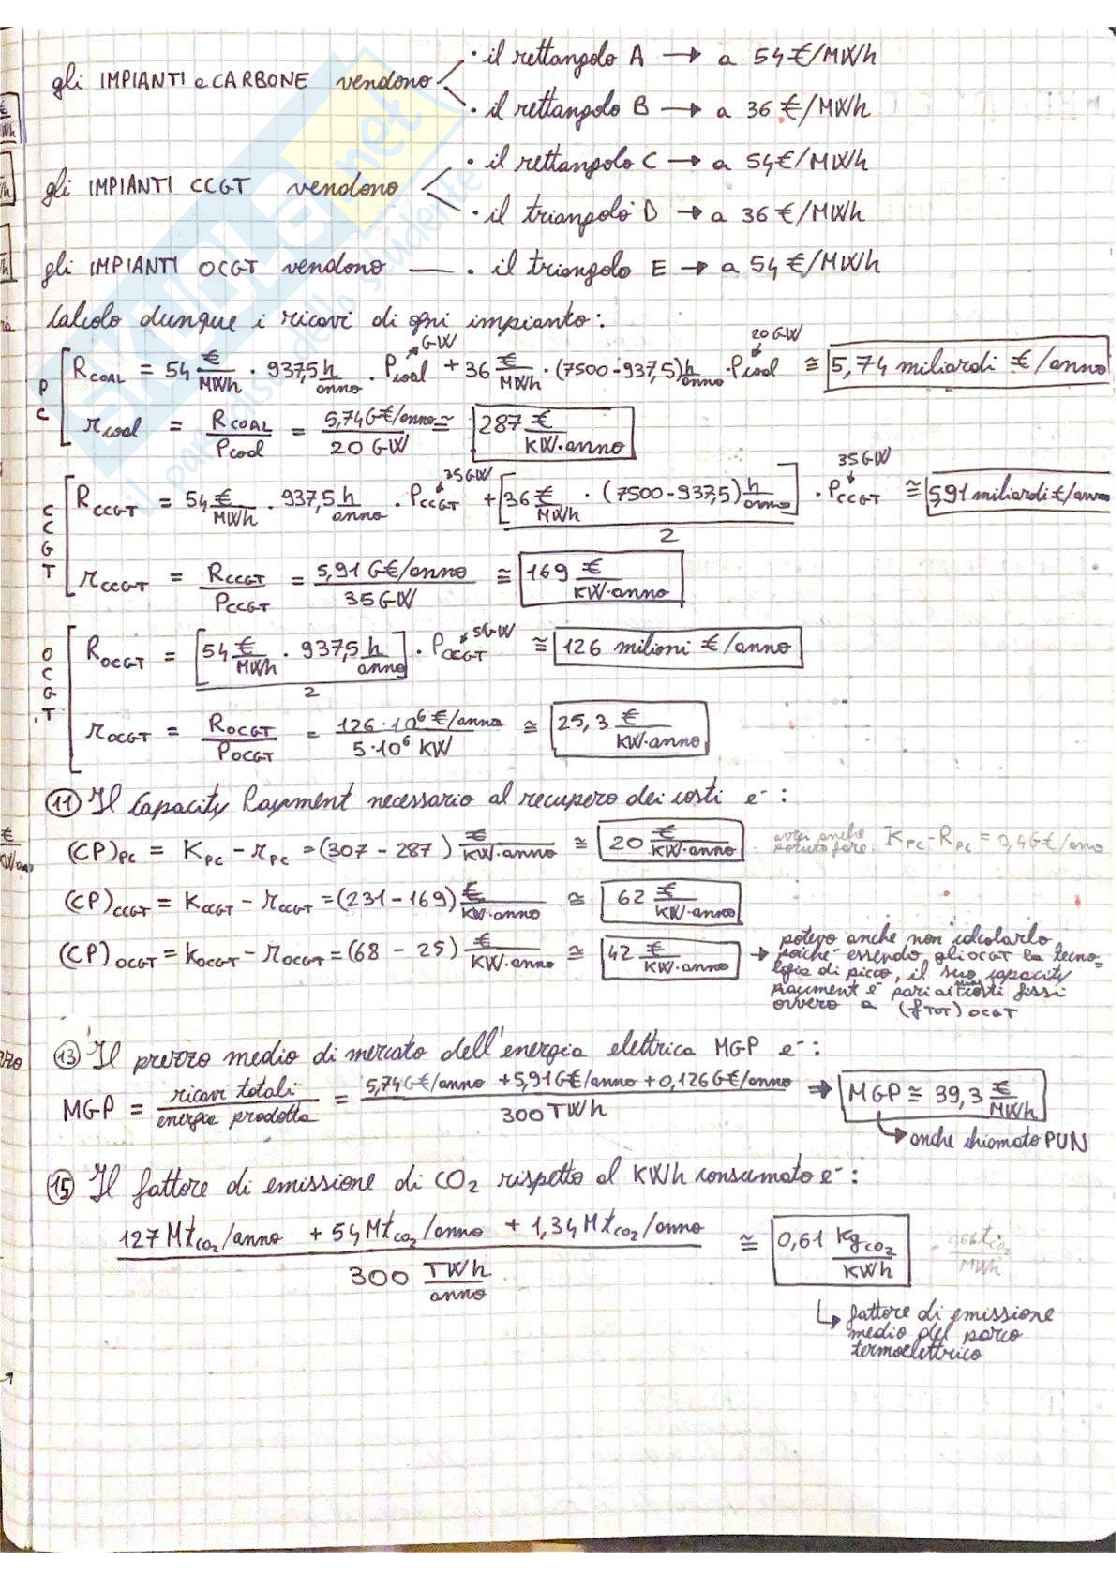 · il rettangolo A → a 54 €/MWh
gli IMPIANTI a CARBONE vendono
· il rettangolo B → a 36 €/MWh
· il rettangolo C → a 54 €/MWh
gli IMPIANTI CCGT vendono
· il triangolo D → a 36 €/MWh
gli IMPIANTI OCGT vendono — · il triangolo E → a 54 €/MWh
Calcolo dunque i ricavi di ogni impianto:
PC
GW 20 GW
R_COAL = 54 €/MWh · 937,5 h/anno · P_coal + 36 €/MWh · (7500-937,5) h/anno · P_coal ≅ 5,74 miliardi €/anno
r_coal = R_COAL/P_coal = 5,74 G€/anno / 20 GW ≅ 287 €/KW·anno
CCGT
35 GW 35 GW
R_CCGT = 54 €/MWh · 937,5 h/anno · P_CCGT + [36 €/MWh · (7500-937,5) h/anno]/2 · P_CCGT ≅ 5,91 miliardi €/anno
r_CCGT = R_CCGT/P_CCGT = 5,91 G€/anno / 35 GW ≅ 169 €/KW·anno
OCGT
5 GW
R_OCGT = [54 €/MWh · 937,5 h/anno]/2 · P_OCGT ≅ 126 milioni €/anno
r_OCGT = R_OCGT/P_OCGT = 126·10⁶ €/anno / 5·10⁶ KW ≅ 25,3 €/KW·anno
11 Il Capacity Payment necessario al recupero dei costi e':
(CP)_PC = K_PC - r_PC = (307 - 287) €/KW·anno ≅ 20 €/KW·anno
potuto fare: K_PC - R_PC = 0,4 G€/anno
(CP)_CCGT = K_CCGT - r_CCGT = (231 - 169) €/KW·anno ≅ 62 €/KW·anno
(CP)_OCGT = K_OCGT - r_OCGT = (68 - 25) €/KW·anno ≅ 42 €/KW·anno
→ potevo anche non calcolarlo,
poiché essendo gli OCGT la tecno-
logia di picco, il suo capacity
payment e' pari ai costi fissi
ovvero a (f_TOT)_OCGT
13 Il prezzo medio di mercato dell'energia elettrica MGP e':
MGP = ricavi totali/energia prodotta = 5,74 G€/anno + 5,91 G€/anno + 0,126 G€/anno / 300 TWh ⇒ MGP ≅ 39,3 €/MWh
anche chiamato PUN
15 Il fattore di emissione di CO₂ rispetto al KWh consumato e':
127 Mt_CO₂/anno + 54 Mt_CO₂/anno + 1,34 Mt_CO₂/anno / 300 TWh/anno ≅ 0,61 Kg_CO₂/KWh
fattore di emissione
medio del parco
termoelettrico